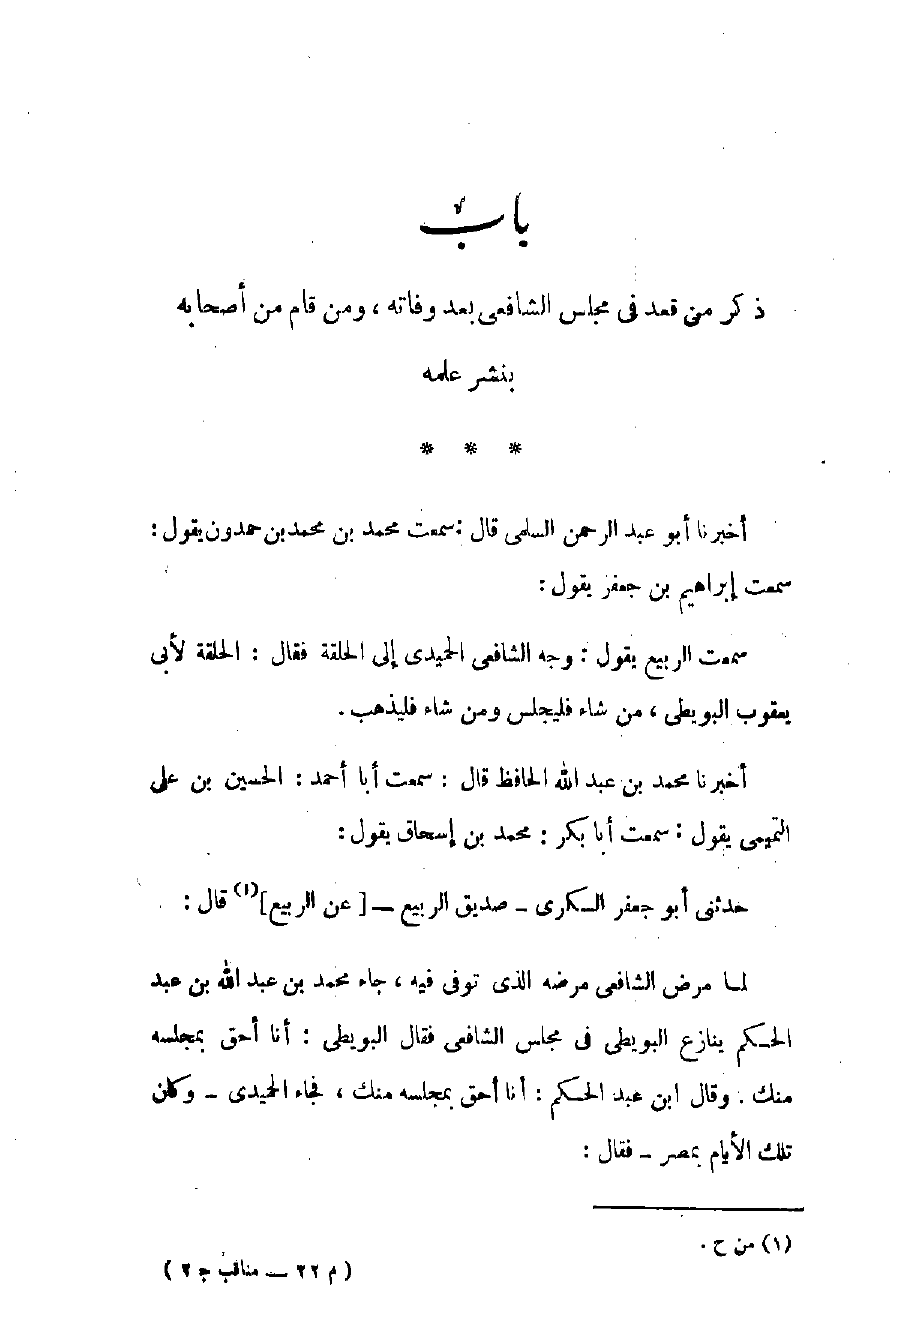 باب
ذكر من قعد فى مجلس الشافعى بعد وفاته ، ومن قام من أصحابه
بنشر علمه
* * *
أخبرنا أبو عبد الرحمن السلمى قال : سمعت محمد بن محمد بن حمدون يقول :
سمعت إبراهيم بن جعفر يقول :
سمعت الربيع يقول : وجه الشافعى الحميدى إلى الحلقة فقال : الحلقة لأبى
يعقوب البويطى ، من شاء فليجلس ومن شاء فليذهب .
أخبرنا محمد بن عبد الله الحافظ قال : سمعت أبا أحمد : الحسين بن على
التميمى يقول : سمعت أبا بكر : محمد بن إسحاق يقول :
حدثنى أبو جعفر السكرى - صديق الربيع - [ عن الربيع ](١) قال :
لما مرض الشافعى مرضه الذى توفى فيه ، جاء محمد بن عبد الله بن عبد
الحكم ينازع البويطى فى مجلس الشافعى فقال البويطى : أنا أحق بمجلسه
منك . وقال ابن عبد الحكم : أنا أحق بمجلسه منك ، فجاء الحميدى - وكان
تلك الأيام بمصر - فقال :
(١) من ح .
( م ٢٢ - مناقب ج ٢ )